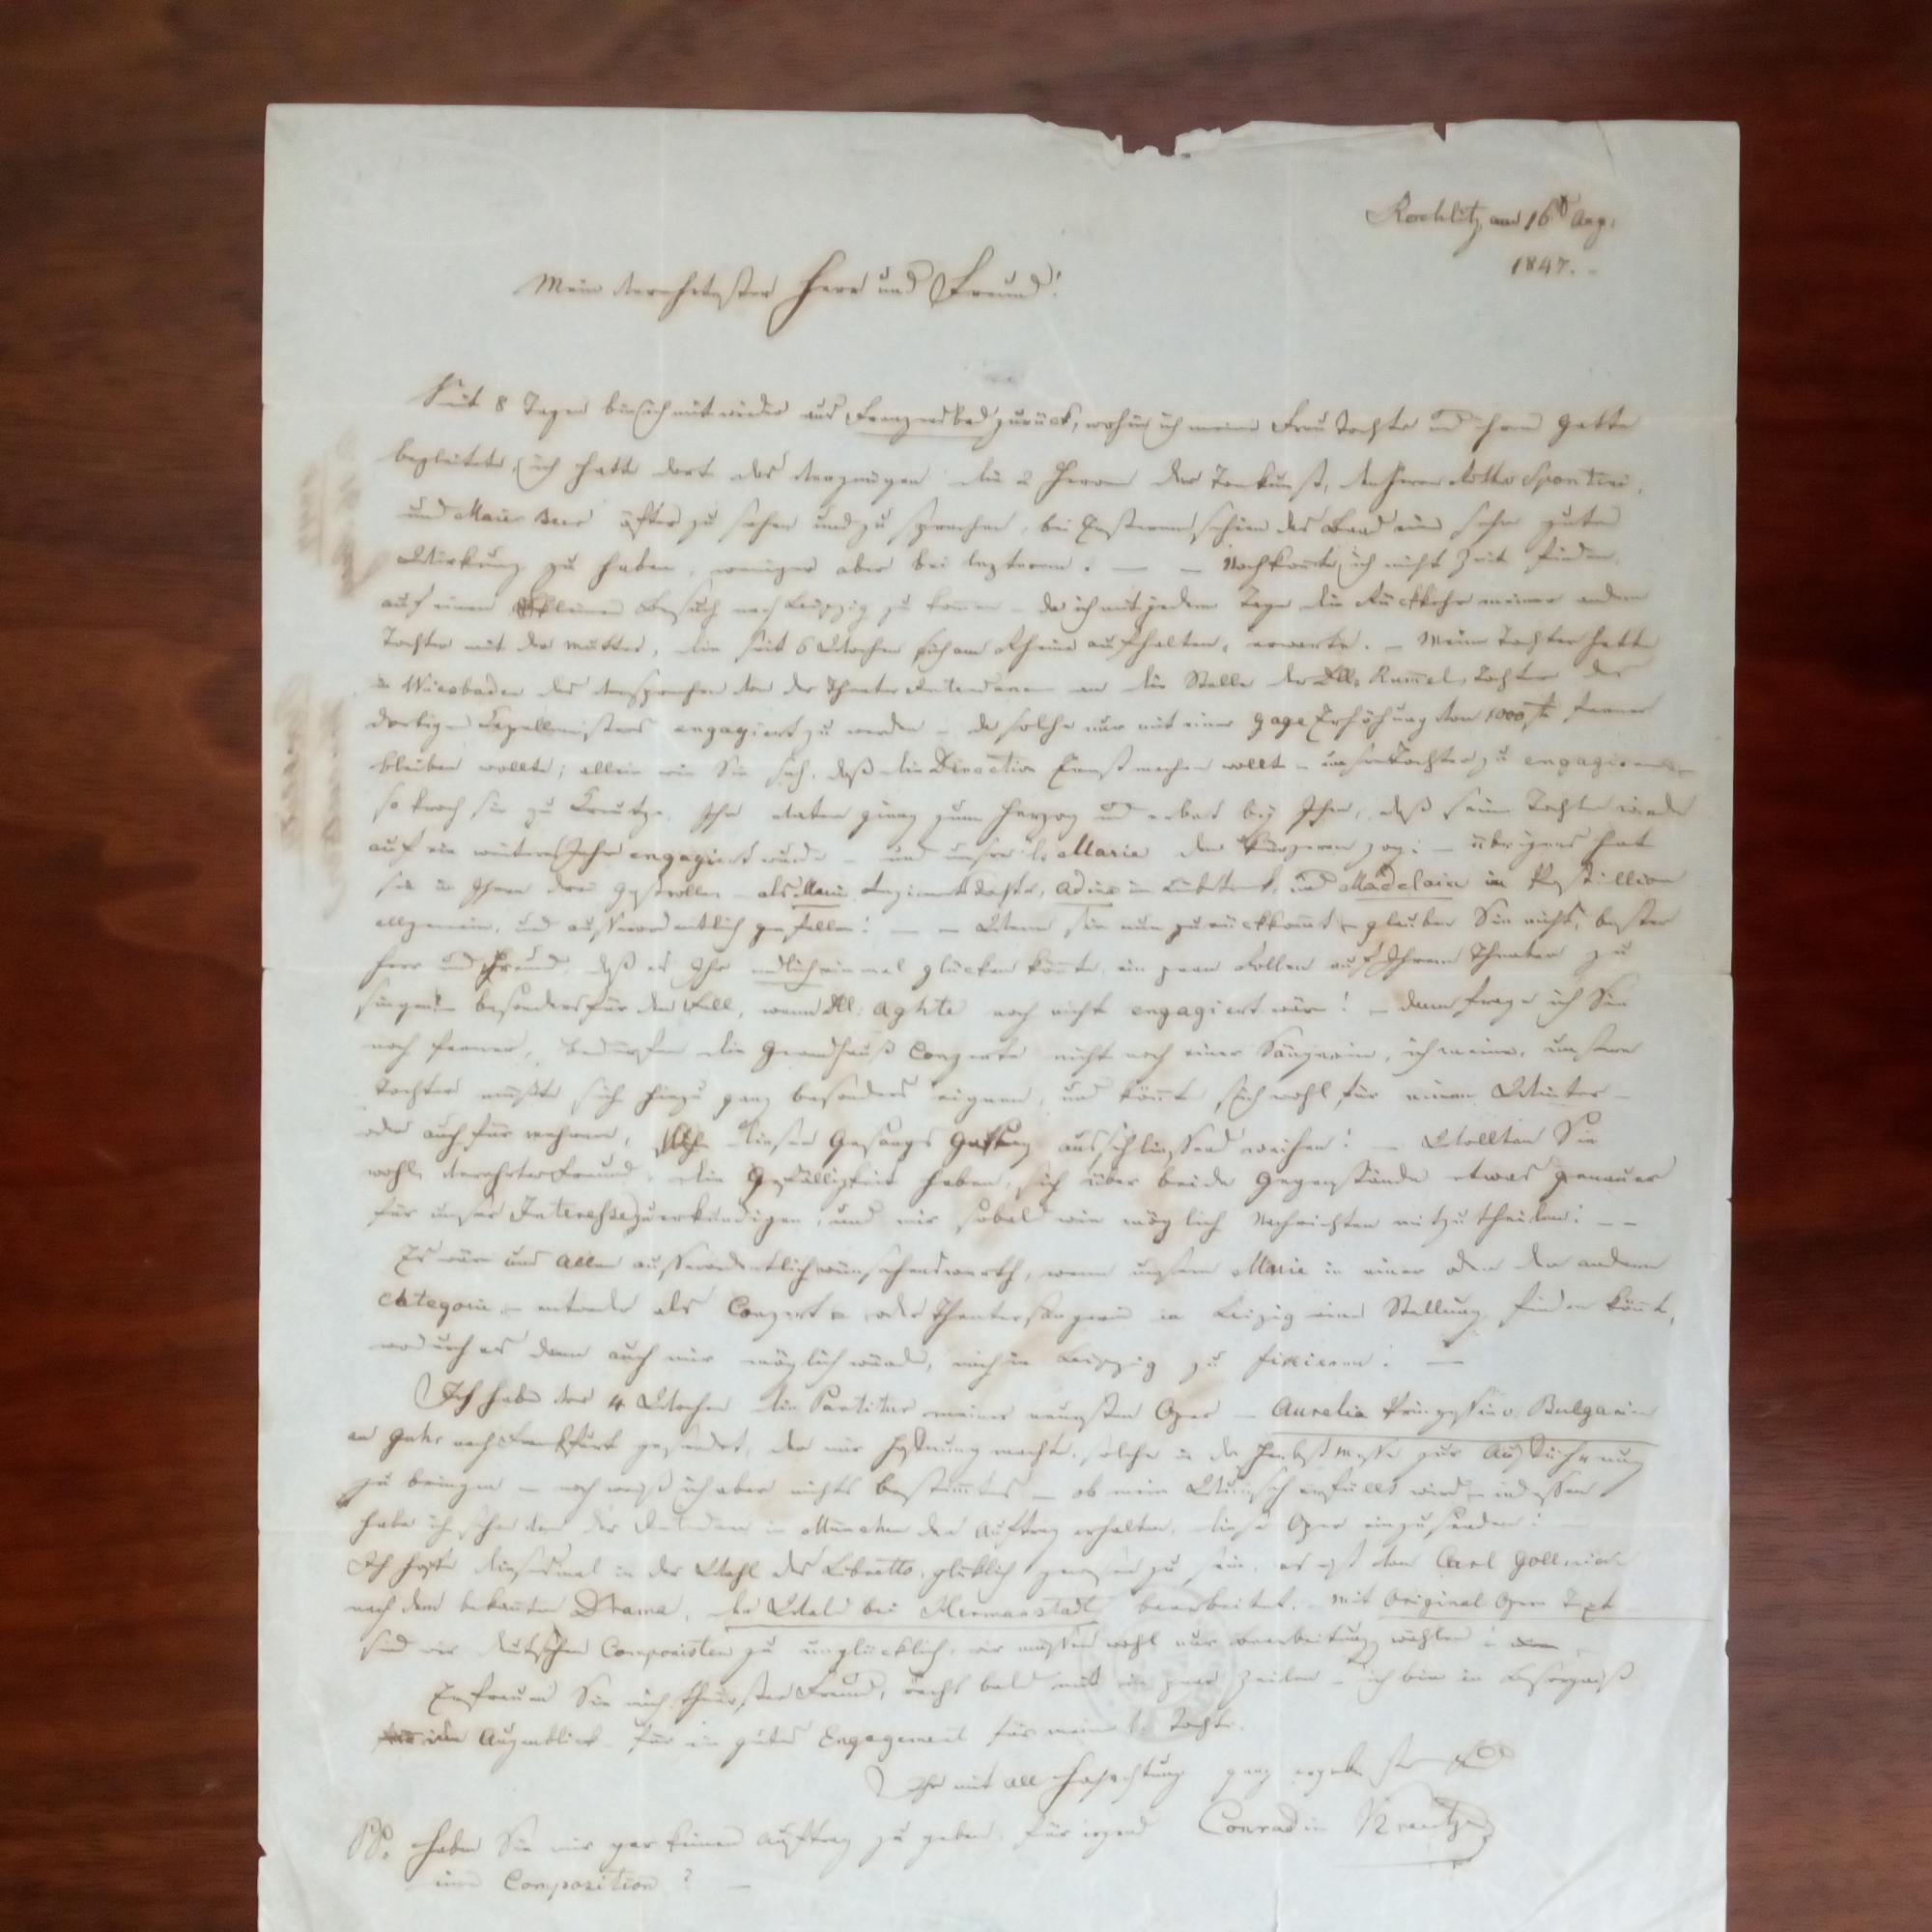 Rochlitz am 16t Aug.
1847.
Mein verehrtester Herr und Freund!
Seit 8 Tagen bin ich mit wieder aus Franzensbad zurück, wohin ich meine Frau Tochter und ihren Gatte
begleitete, ich hatte dort das Vergnügen die 2 Heroen der Tonkunst, den Herrn Spontini,
und Maier Beer öfter zu sehen und zu sprechen, bei Ersterem schien das Baad eine sehr gute
Wirkung zu haben, weniger aber bei lezterem. — — Noch konte ich nicht Zeit finden,
auf einen kleinen Besuch nach Leipzig zu komen – da ich mit jedem Tage die Rückkehr meiner andern
Tochter mit der Mutter, die seit 6 Wochen sich am Rheine aufhalten, erwarte. – Meine Tochter hatte
in Wiesbaden das Versprechen von der Theater Intendance an die Stelle der Dlle Rummel, Tochter des
dortigen Capellmeisters engagiert zu werden – da solche nur mit einer Gage Erhöhung von 1000 f ferner
bleiben wollte; allein wie Sie sah, daß die Direction Ernst machen wollte – unsre Tochter zu engagieren –
so kroch sie zu Kreutze, Ihr Vater ging zum Herzog und erbat bey Ihm, daß seine Tochter wieder
auf ein weiteres Jahr engagiert wurde – und unsre l. Marie den kürzeren zog; – übrigens hat
sie in Ihren drei Gastrollen – als Marie Regimentstochter, Adine im Liebstrank, und Madelain im Postillion
allgemein, und ausserordentlich gefallen! — — Wenn sie nun zurückkommt – glauben Sie nicht, bester
Herr und Freund, daß es Ihr endlich einmal glücken könnte, ein paar Rollen auf Ihrem Theater zu
singen? – besonders für den Fall, wenn Dll. Aghte noch nicht engagiert wäre! – dann frage ich Sie
noch ferner, bedürfen die Gewandhauß Conzerte nicht noch einer Sängerin, ich meine, unsere
Tochter müßte sich hiezu ganz besonders eignen, und könnte sich wohl für einen Winter –
oder auch für mehrere, dieser Gesangs Gattung ausschliessend weihen! – Wollten Sie
wohl, verehrter Freund, die Gefälligkeit haben, sich über beide Gegenstände etwas genauer
für unser Interesse zu erkundigen, und mir sobald wie möglich Nachrichten mitzutheilen! – –
Es wäre uns Allen ausserordentlich wünschenswerth, wenn unsere Marie in einer oder der andern
Categorie – entweder als Conzert – oder Theatersängerin in Leipzig eine Stellung finden könnte,
wodurch es dann auch mir möglich würde, mich in Leipzig zu fixieren! —
Ich habe vor 4 Wochen die Partitur meiner neuesten Oper – Aurelia Prinzessin v. Bulgarien
an Guhr nach Frankfurt gesendet, der mir Hofnung machte, solche in der Herbstmesse zur Aufführung
zu bringen – noch weiß ich aber nichts bestimmtes – ob mein Wunsch erfüllt wird – indessen
habe ich schon von der Intendanz in München den Auftrag erhalten, diese Oper einzusenden!
Ich hoffe diesesmal in der Wahl des Libretto, glücklich gewesen zu sein, es ist von Carl Gollmick
nach dem bekannten Drama, der Wald bei Hermanstadt bearbeitet. – Mit Original Opern Text
sind wir deutschen Componisten zu unglücklich, wir müssen wohl nur Bearbeitung wählen!
Erfreuen Sie mich, theuerster Freund, recht bald mit ein paar Zeilen – ich bin in Besorgniß
im Augenblick – für ein gutes Engagement für meine l. Tochter.
Ihr mit all Hochachtung ganz ergebenster Fd
Conradin Kreutzer
PS. Haben Sie mir gar keinen Auftrag zu geben, für irgend
eine Composition? —